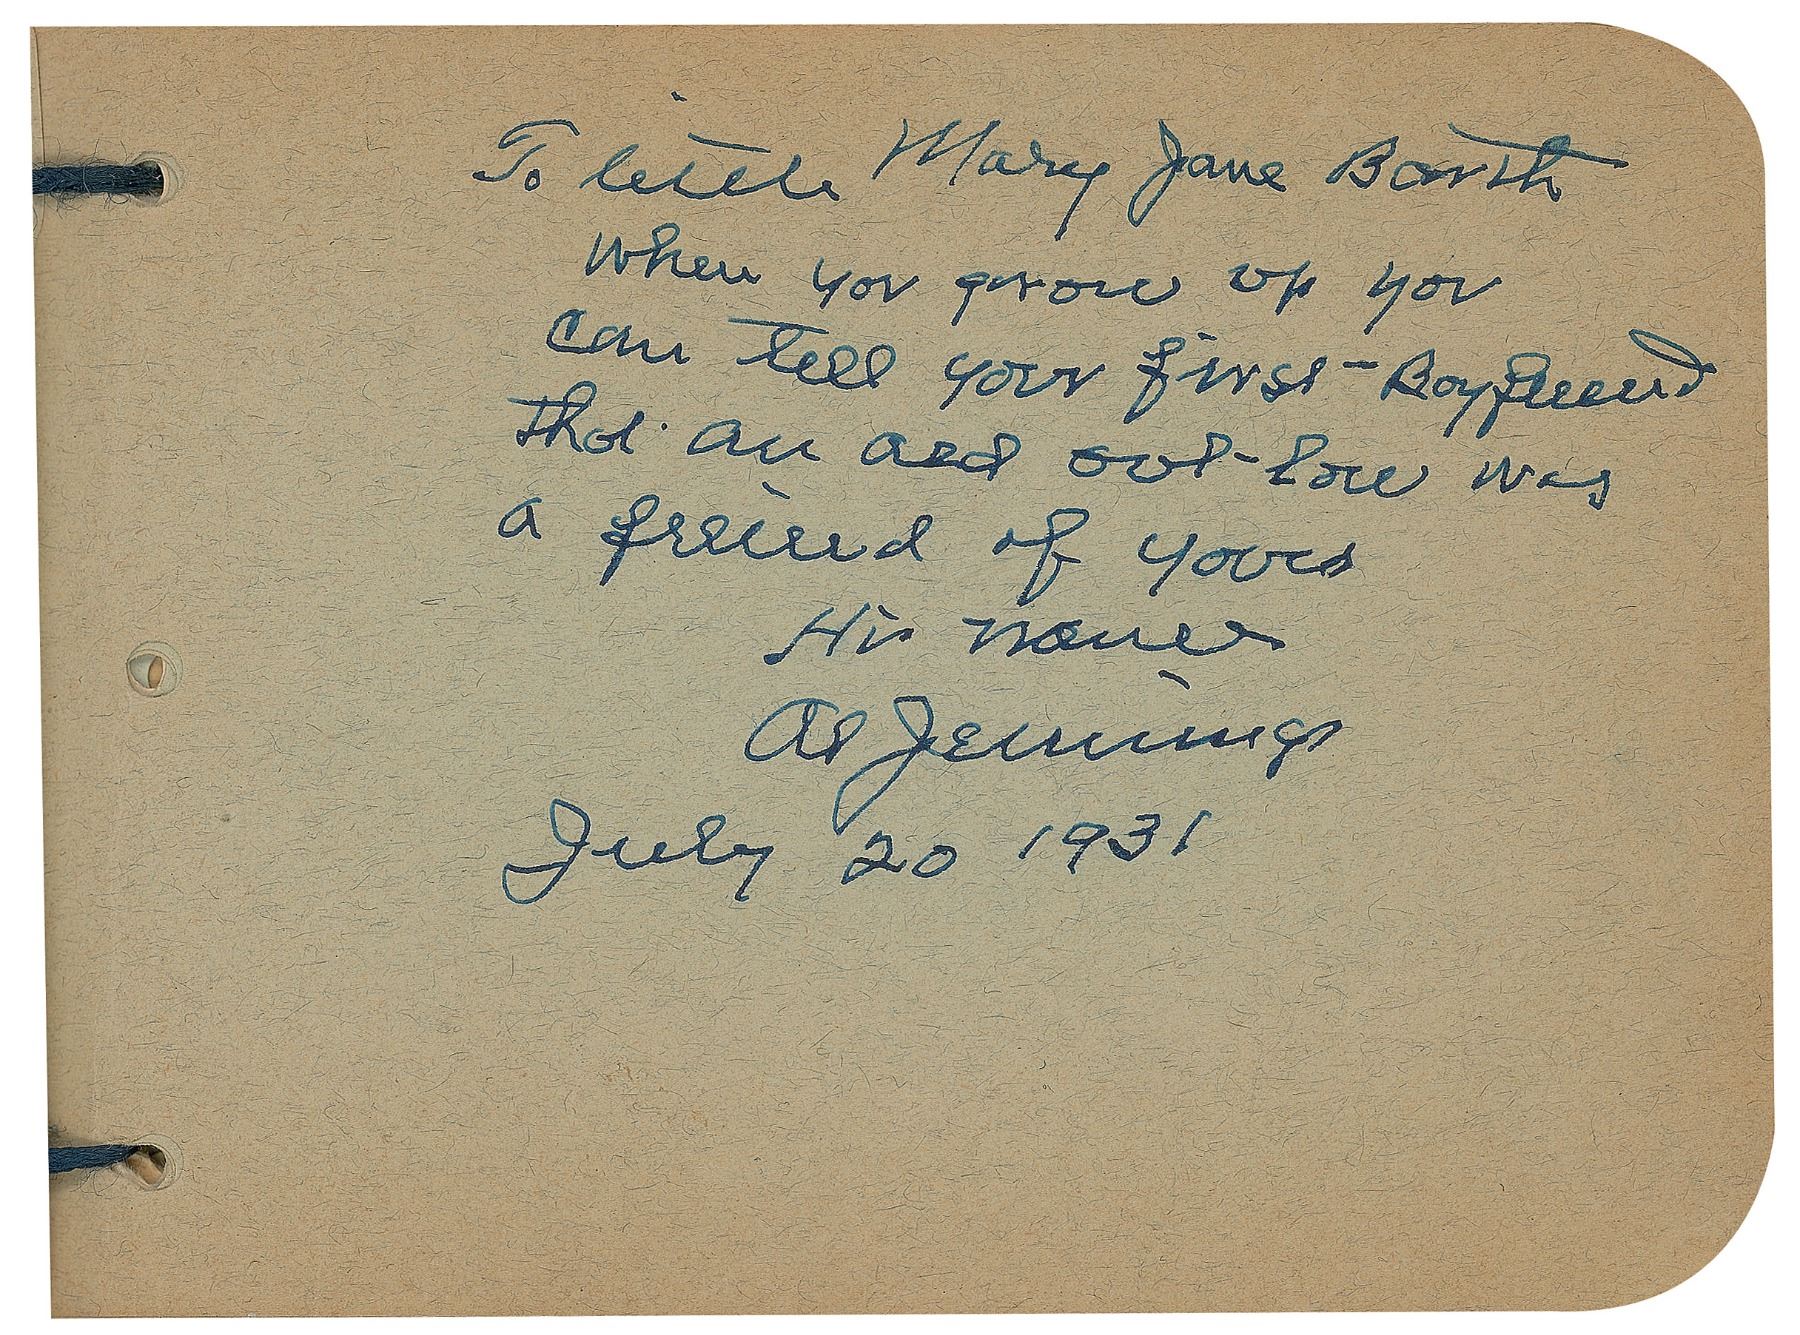 To little Mary Jane Barth
When you grow up you
can tell your first-Boyfriend
that an old out-law was
a friend of yours
His name
Al Jennings
July 20 1931